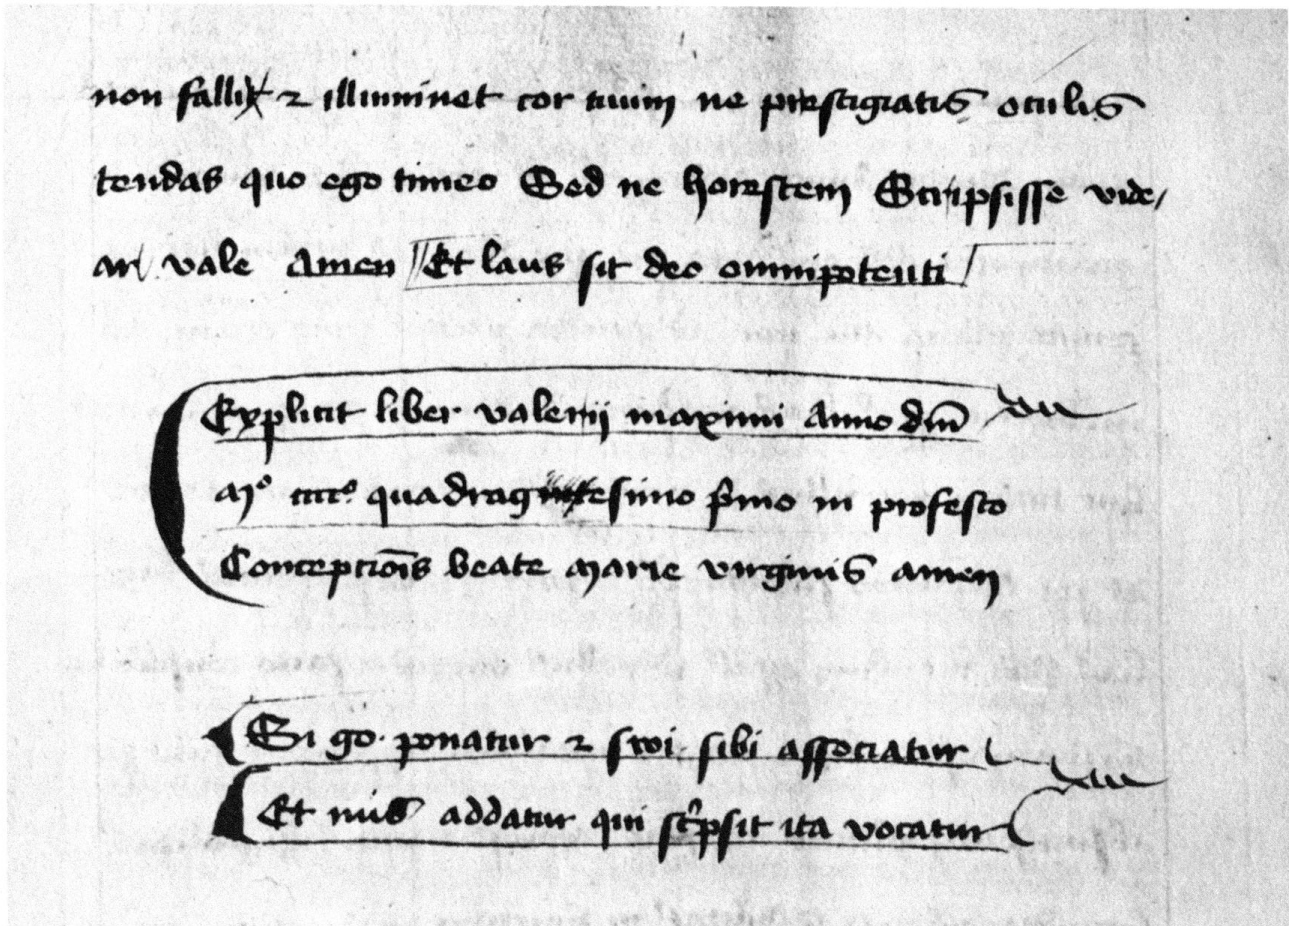 non falli & illuminet cor tuum ne prestigiatis oculis
tendas quo ego timeo Sed ne horestem Scripsisse vide/
ar vale Amen Et laus sit deo omnipotenti
Explicit liber valerii maximi Anno dm̄
Mº ccccº quadragesimo p̄mo in profesto
Concepciōis beate marie virginis amen
Si go · ponatur & swi · sibi associatur
Et nus addatur qui sc̄psit ita vocatur